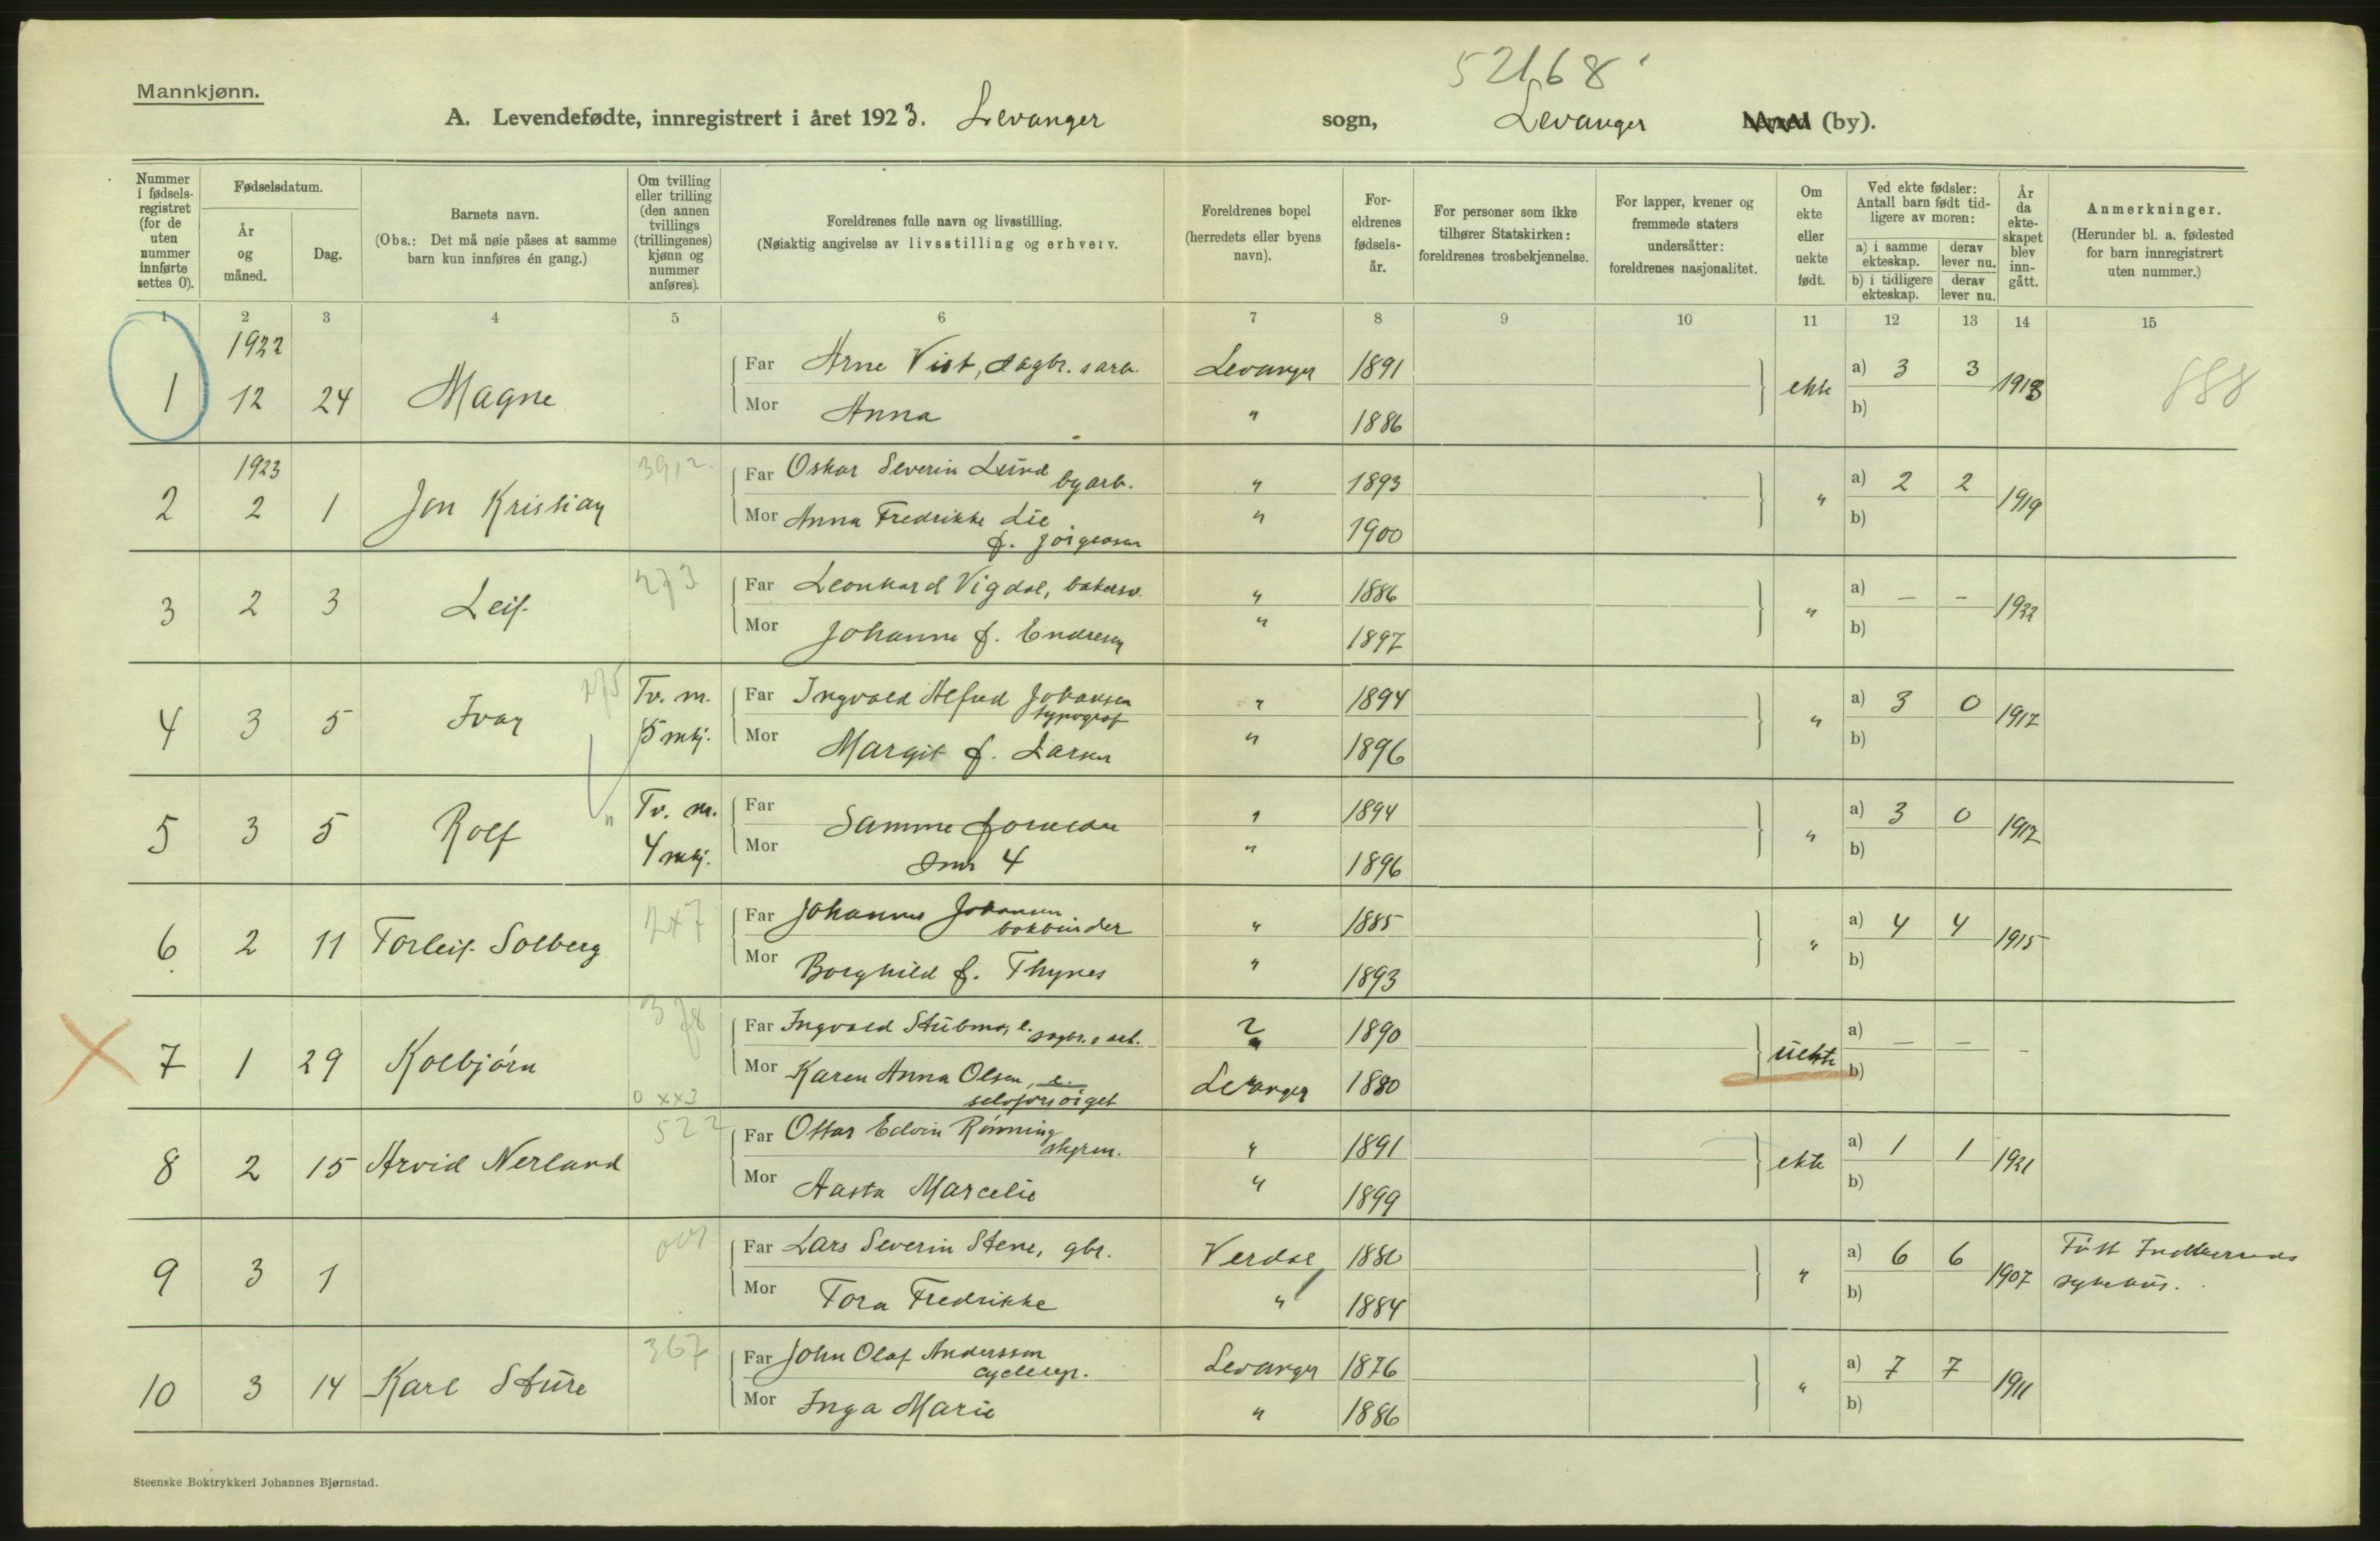 52168
Mannkjønn.
A. Levendefødte, innregistrert i året 1923. Levanger sogn, Levanger herred (by).
Nummer i fødsels-registret (for de uten nummer innførte settes 0).
Fødselsdatum.
År og måned.
Dag.
Barnets navn.
(Obs.: Det må nøie påses at samme barn kun innføres én gang.)
Om tvilling eller trilling (den annen tvillings (trillingenes) kjønn og nummer anføres).
Foreldrenes fulle navn og livsstilling.
(Nøiaktig angivelse av livsstilling og erhverv.
Foreldrenes bopel (herredets eller byens navn).
For-eldrenes fødsels-år.
For personer som ikke tilhører Statskirken: foreldrenes trosbekjennelse.
For lapper, kvener og fremmede staters undersåtter: foreldrenes nasjonalitet.
Om ekte eller uekte født.
Ved ekte fødsler: Antall barn født tid-ligere av moren:
a) i samme ekteskap.
derav lever nu.
b) i tidligere ekteskap.
derav lever nu.
År da ekte-skapet blev inn-gått.
Anmerkninger.
(Herunder bl. a. fødested for barn innregistrert uten nummer.)
1 2 3 4 5 6 7 8 9 10 11 12 13 14 15
1922
1 12 24 Magne Far Arne Vist, dagbr. sarb. Levanger 1891 ekte a) 3 3 1913 888
Mor Anna " 1886 b)
1923 3912
2 2 1 Jon Kristian Far Oskar Severin Lund byarb. " 1893 " a) 2 2 1919
Mor Anna Fredrikke Lie f. Jørgensen " 1900 b)
3 2 3 Leif 273 Far Leonhard Vigdal, bakersv. " 1886 " a) — — 1922
Mor Johanne f. Endresen " 1897 b)
4 3 5 Ivar Tv. m. 5 mkj. Far Ingvald Alfred Johansen typograf " 1894 " a) 3 0 1917
Mor Margit f. Larsen " 1896 b)
5 3 5 Rolf " Tv. m. 4 mkj. Far Samme foreldre " 1894 " a) 3 0 1917
Mor som 4 " 1896 b)
6 2 11 Torleif Solberg 2x7 Far Johannes Johansen bokbinder " 1885 " a) 4 4 1915
Mor Borghild f. Thynes " 1893 b)
7 1 29 Kolbjørn Far Ingvald Stubmo, e. ? 1890 uekte a) — — -
0 xx3 Mor Karen Anna Olsen, e. selvforsørget Levanger 1880 b)
8 2 15 Arvid Nerland 522 Far Ottar Edvin Rønning " 1891 ekte a) 1 1 1921
Mor Aasta Marcelie " 1899 b)
9 3 1 Far Lars Severin Stene, gbr. Verdal 1880 " a) 6 6 1907 Født Indherreds sykehus.
Mor Tora Fredrikke " 1884 b)
10 3 14 Karl Sture 367 Far John Olaf Andersson cyclerep. Levanger 1876 " a) 7 7 1911
Mor Inga Marie " 1886 b)
Steenske Boktrykkeri Johannes Bjørnstad.